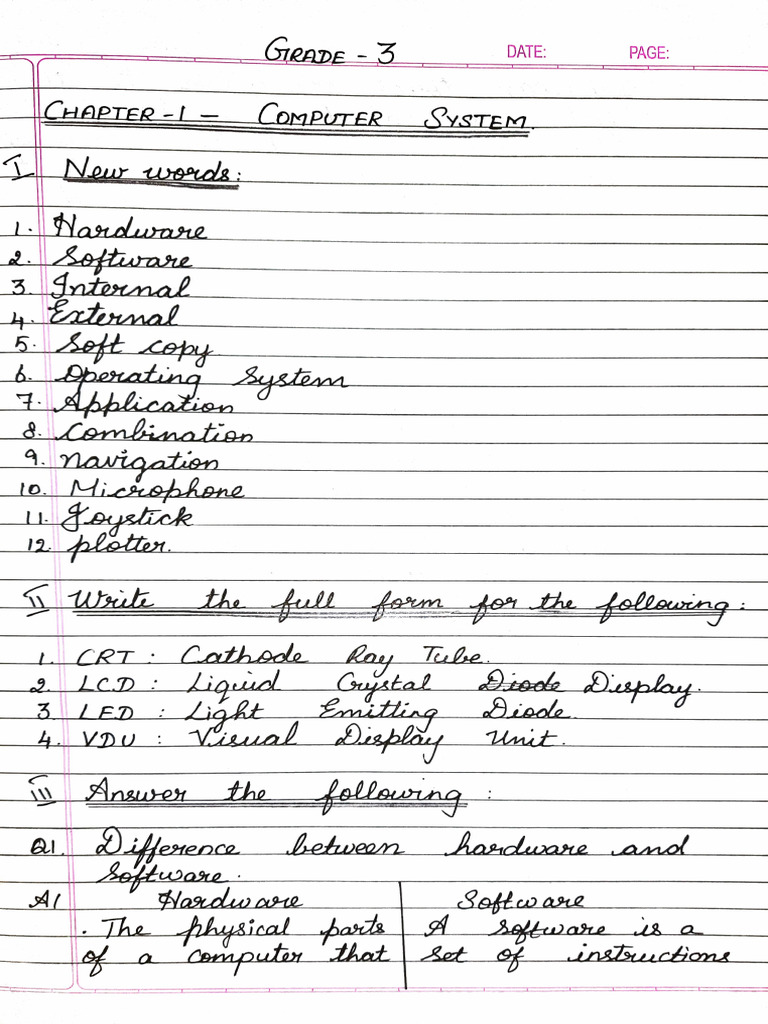 GRADE - 3 DATE: PAGE:
CHAPTER -1 - COMPUTER SYSTEM.
I New words:
1. Hardware
2. Software
3. Internal
4. External
5. Soft copy
6. Operating System
7. Application
8. Combination
9. Navigation
10. Microphone
11. Joystick
12. plotter.
II Write the full form for the following:
1. CRT : Cathode Ray Tube.
2. LCD : Liquid Crystal Diode Display.
3. LED : Light Emitting Diode.
4. VDU : Visual Display Unit.
III Answer the following :
Q1. Difference between hardware and
software.
A1 Hardware Software
. The physical parts A software is a
of a computer that set of instructions